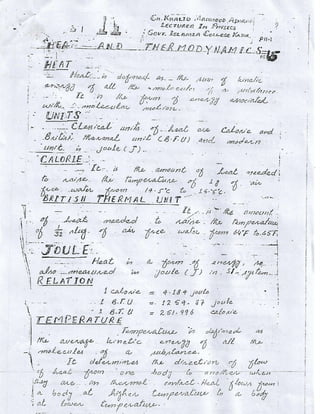 CH. KHALID MAHMOOD
LECTURER IN PHYSICS
GOVT. ISLAMIA COLLEGE KASUR.
HEAT AND THERMODYNAMICS
HEAT
Heat is defined as the sum of kinetic
energy of all the molecules of a substance
It is the form of energy associated
with molecular motion.
UNITS
Classical units of heat are Calorie and
British Thermal unit (B.T.U) and modern
unit is joule (J).
CALORIE
It is the amount of heat needed
to raise the temperature of 1g of air
free water from 14.5°C to 15.5°C
BRITISH THERMAL UNIT
It is the amount
of heat needed to raise the temperature
of 1/32 slug of air free water from 64°F to 65°F.
JOULE
Heat is a form of energy, so
also measured in joule (J) in SI-system.
RELATION
1 calorie = 4.184 joule
1 B.T.U = 1254.37 joule
1 B.T.U = 251.996 calorie
TEMPERATURE
Temperature is defined as
the average kinetic energy of all the
molecules of a substance.
It determines the direction of flow
of heat from one body to another when
they are on thermal contact. Heat flows from
a body at higher temperature to a body
at lower temperature.